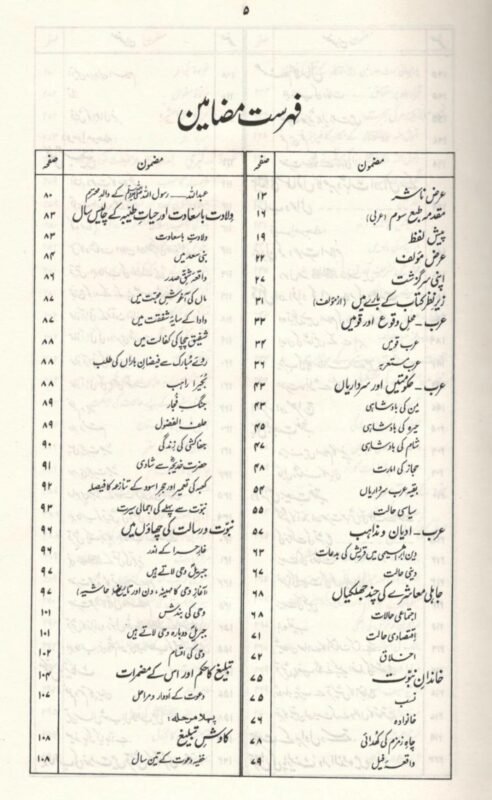 ۵
فہرست مضامین
مضمون صفحہ
عرض ناشر ۱۳
مقدمہ طبع سوم (عربی) ۱۶
پیش لفظ ۱۹
عرض مؤلف ۲۲
اپنی سرگزشت ۲۷
زیرِ نظر کتاب کے بارے میں (از مؤلف) ۳۱
عرب - محل وقوع اور قومیں ۳۳
عرب قومیں ۳۴
عرب مستعربہ ۳۶
عرب - حکومتیں اور سرداریاں ۴۳
یمن کی بادشاہی ۴۳
حیرہ کی بادشاہی ۴۵
شام کی بادشاہی ۴۷
حجاز کی امارت ۴۸
بقیہ عرب سرداریاں ۵۴
سیاسی حالت ۵۵
عرب - ادیان و مذاہب ۵۷
دین ابراہیمی میں قریش کی بدعات ۶۳
دینی حالت ۶۷
جاہلی معاشرے کی چند جھلکیاں ۶۸
اجتماعی حالات ۶۸
اقتصادی حالت ۷۱
اخلاق ۷۲
خاندانِ نبوت ۷۵
نسب ۷۵
خانوادہ ۷۶
چاہِ زمزم کی کھدائی ۷۸
واقعۂ فیل ۷۹
مضمون صفحہ
عبداللہ - رسول اللہ ﷺ کے والد محترم ۸۰
ولادت باسعادت اور حیاتِ طیبہ کے چالیس سال ۸۳
ولادت باسعادت ۸۳
بنی سعد میں ۸۴
واقعۂ شق صدر ۸۶
ماں کی آغوشِ محبت میں ۸۷
دادا کے سایۂ شفقت میں ۸۷
شفیق چچا کی کفالت میں ۸۸
روئے مبارک سے فیضانِ باراں کی طلب ۸۸
بحیرا راہب ۸۸
جنگ فجار ۸۹
حلف الفضول ۸۹
جفاکشی کی زندگی ۹۰
حضرت خدیجہؓ سے شادی ۹۱
کعبہ کی تعمیر اور حجر اسود کے تنازعہ کا فیصلہ ۹۲
نبوت سے پہلے کی اجمالی سیرت ۹۳
نبوت و رسالت کی چھاؤں میں ۹۶
غارِ حرا کے اندر ۹۶
جبریلؑ وحی لاتے ہیں ۹۷
(آغازِ وحی کا مہینہ، دن اور تاریخ مع حاشیہ) ۹۷
وحی کی بندش ۱۰۱
جبریلؑ دوبارہ وحی لاتے ہیں ۱۰۱
وحی کی اقسام ۱۰۲
تبلیغ کا حکم اور اس کے مضمرات ۱۰۴
دعوت کے ادوار و مراحل ۱۰۷
پہلا مرحلہ:
کاوشِ تبلیغ ۱۰۸
خفیہ دعوت کے تین سال ۱۰۸